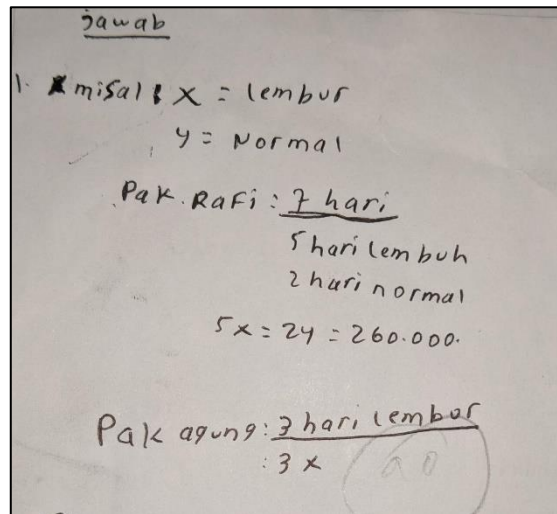 Jawab
1. misal : x = lembur
y = Normal
Pak. Rafi : 7 hari
5 hari lembuh
2 hari normal
5x = 2y = 260.000.
Pak agung : 3 hari lembur
: 3x